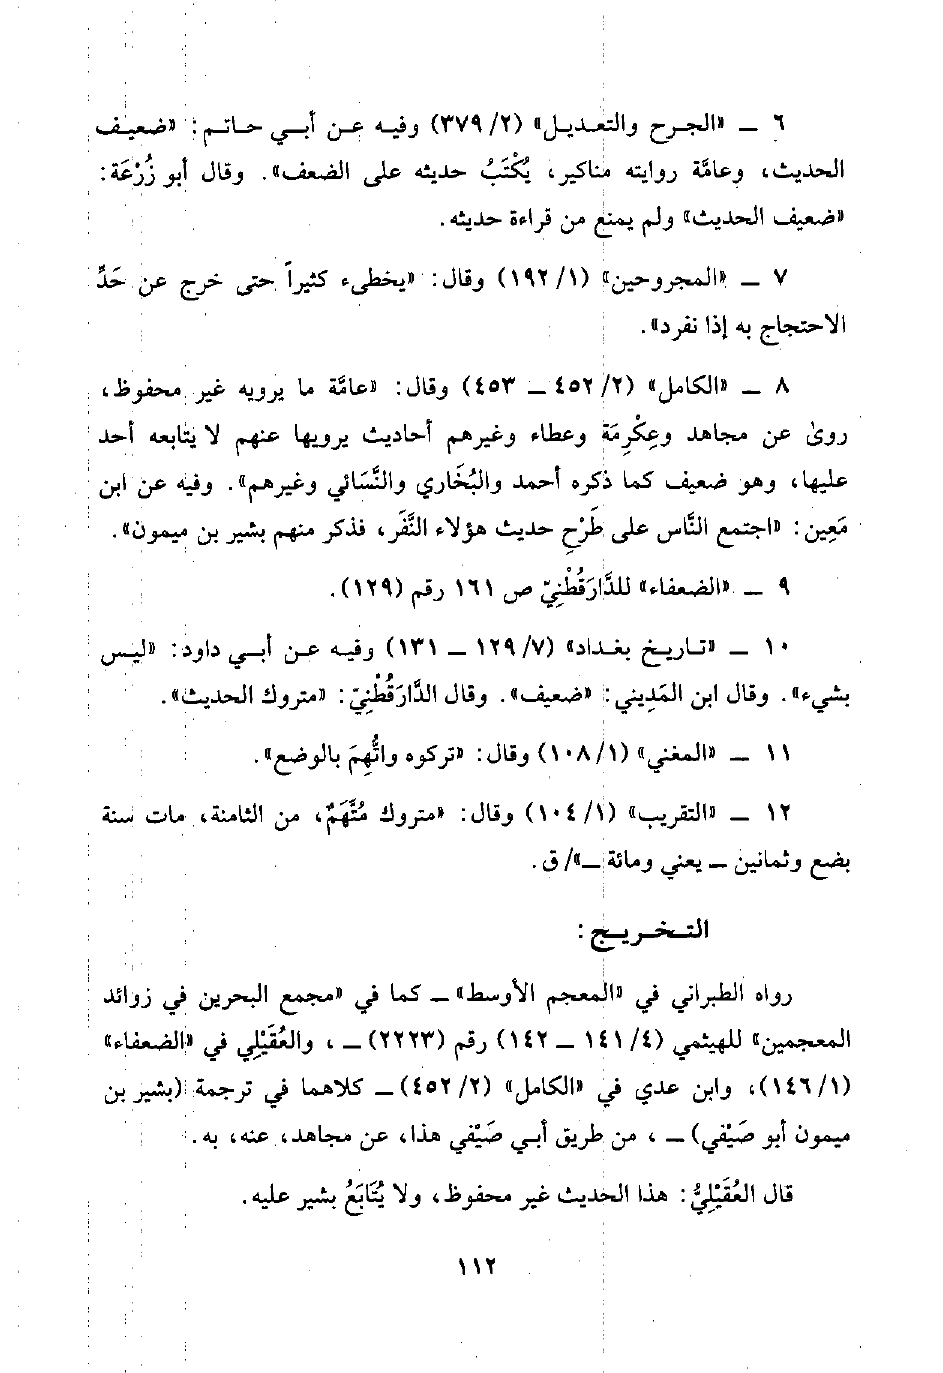 ٦ ــ «الجرح والتعديل» (٣٧٩/٢) وفيه عن أبي حاتم: «ضعيف
الحديث، وعامَّة روايته مناكير، يُكْتَبُ حديثه على الضعف». وقال أبو زُرْعَة:
«ضعيف الحديث» ولم يمنع من قراءة حديثه.
٧ ــ «المجروحين» (١٩٢/١) وقال: «يخطىء كثيراً حتى خرج عن حَدِّ
الاحتجاج به إذا نفرد».
٨ ــ «الكامل» (٤٥٢/٢ ــ ٤٥٣) وقال: «عامَّة ما يرويه غير محفوظ،
روىٰ عن مجاهد وعِكْرِمَة وعطاء وغيرهم أحاديث يرويها عنهم لا يتابعه أحد
عليها، وهو ضعيف كما ذكره أحمد والبُخَاري والنَّسَائي وغيرهم». وفيه عن ابن
مَعِين: «اجتمع النَّاس على طَرْحِ حديث هؤلاء النَّفَر، فذكر منهم بشير بن ميمون».
٩ ــ «الضعفاء» للدَّارَقُطْنِيّ ص ١٦١ رقم (١٢٩).
١٠ ــ «تاريخ بغداد» (١٢٩/٧ ــ ١٣١) وفيه عن أبي داود: «ليس
بشيء». وقال ابن المَدِيني: «ضعيف». وقال الدَّارَقُطْنِيّ: «متروك الحديث».
١١ ــ «المغني» (١٠٨/١) وقال: «تركوه واتُّهِمَ بالوضع».
١٢ ــ «التقريب» (١٠٤/١) وقال: «متروك مُتَّهَمٌ، من الثامنة، مات سنة
بضع وثمانين ــ يعني ومائة ــ»/ ق.
التخريج:
رواه الطبراني في «المعجم الأوسط» ــ كما في «مجمع البحرين في زوائد
المعجمين» للهيثمي (١٤١/٤ ــ ١٤٢) رقم (٢٢٢٣) ــ ، والعُقَيْلِي في «الضعفاء»
(١٤٦/١)، وابن عدي في «الكامل» (٤٥٢/٢) ــ كلاهما في ترجمة (بشير بن
ميمون أبو صَيْفي) ــ ، من طريق أبي صَيْفي هذا، عن مجاهد، عنه، به.
قال العُقَيْلِيُّ: هذا الحديث غير محفوظ، ولا يُتَابَعُ بشير عليه.
١١٢